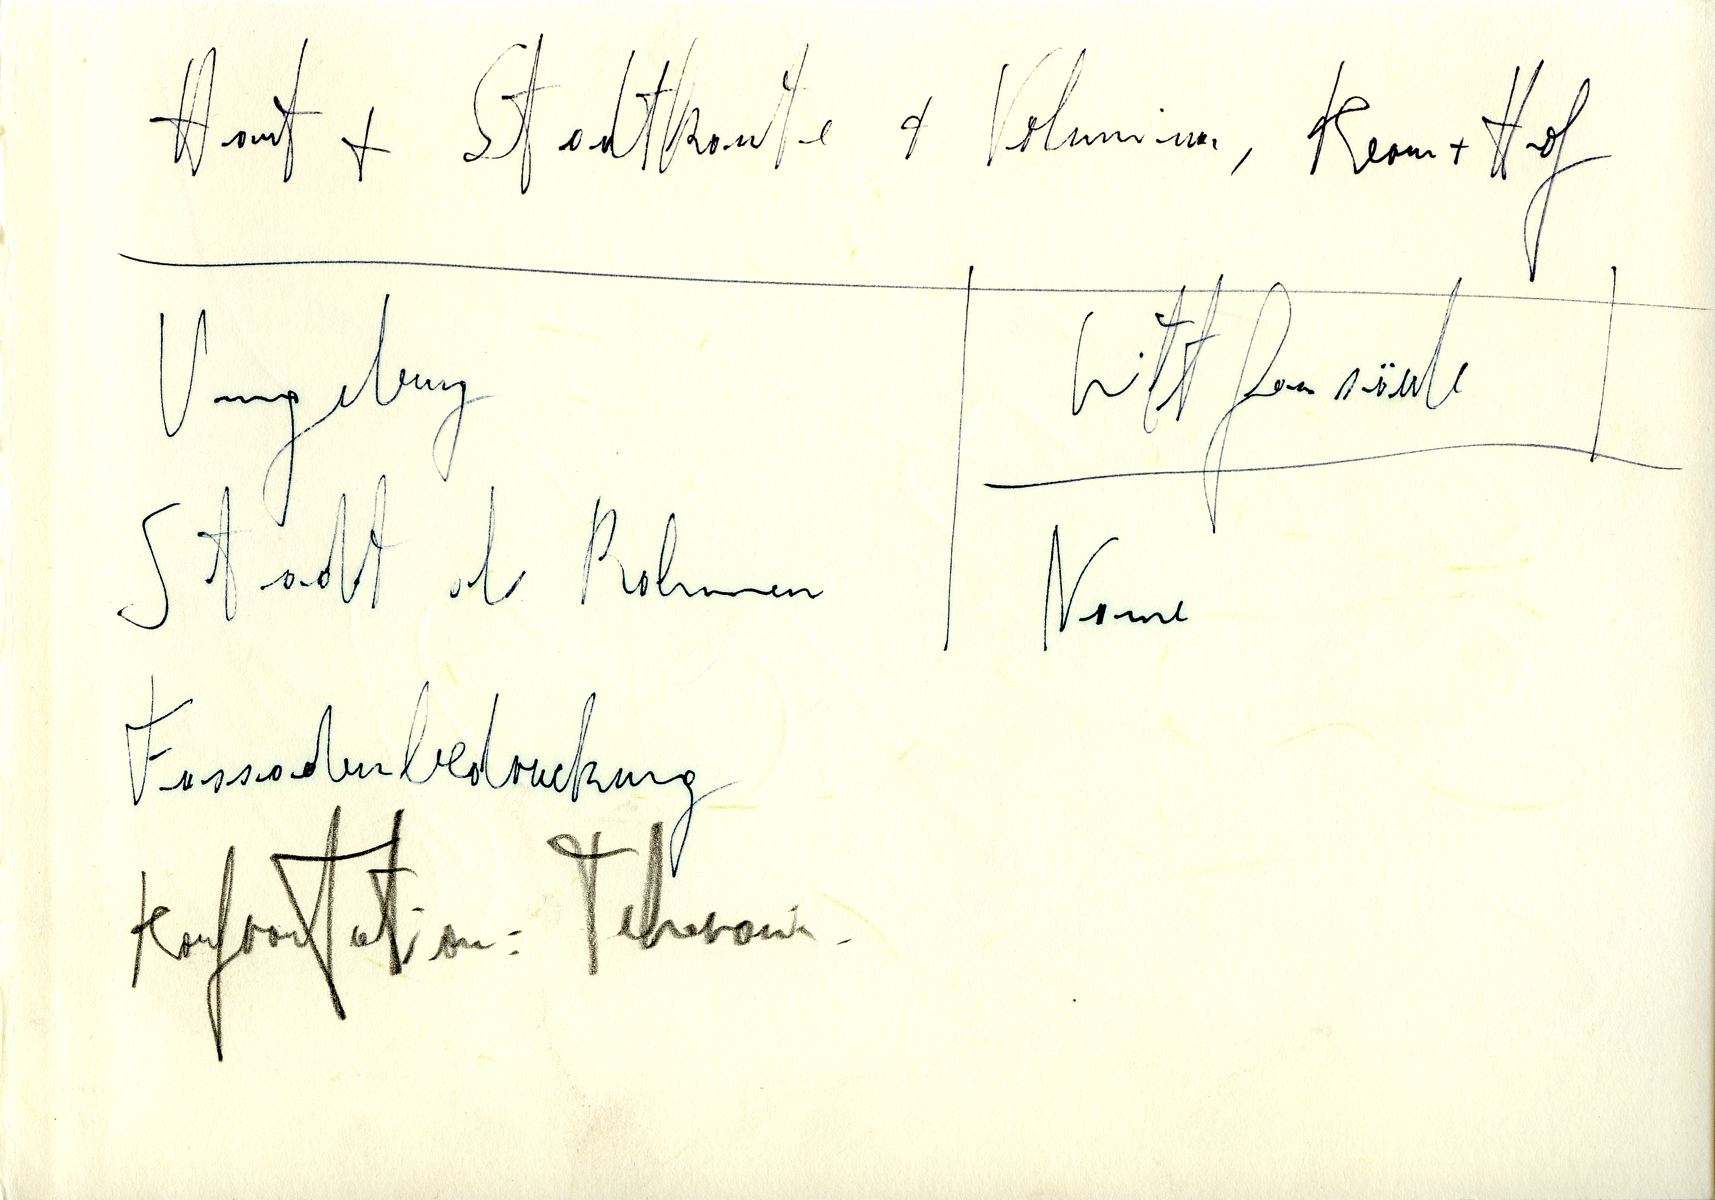 Haut + Stadtkante + Volumina, Kern + Hof
Umgebung
Stadt als Rahmen
Fassadenbedruckung
Konfrontation:
Litfassäule
Name